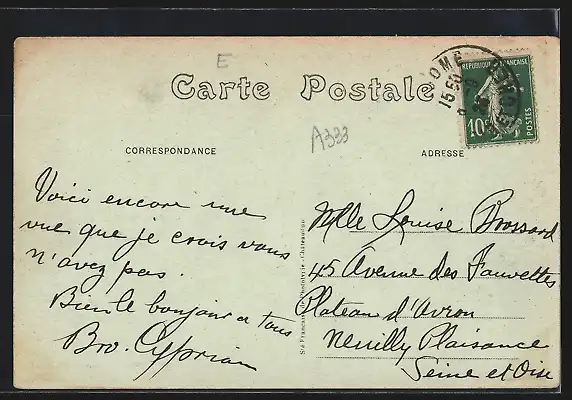 E
Carte Postale
A333
CORRESPONDANCE
ADRESSE
REPUBLIQUE FRANÇAISE
10c
POSTES
15 50
Voici encore une
vue que je crois vous
n'avez pas.
Bien le bonjour a tous
Bro. Cyprian
Sté Française de Phototypie - Châteaudun
Mlle Louise Brossard
45 Avenue des Fauvettes
Plateau d'Avron
Neuilly Plaisance
Seine et Oise